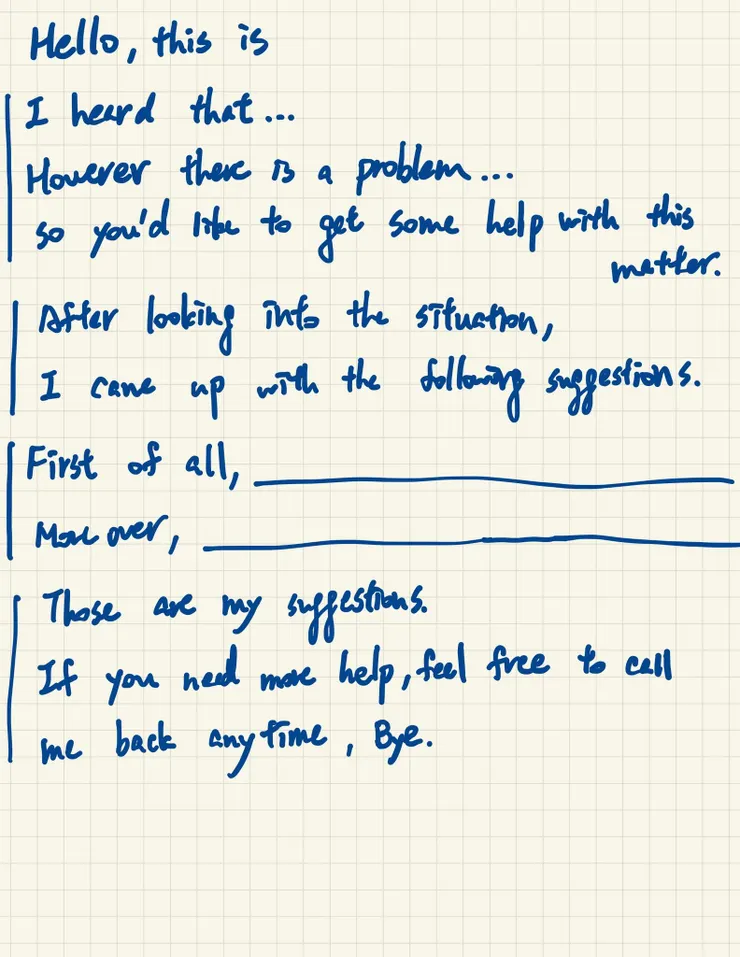 Hello, this is
I heard that...
However there is a problem...
so you'd like to get some help with this
matter.
After looking into the situation,
I came up with the following suggestions.
First of all,
Moreover,
Those are my suggestions.
If you need more help, feel free to call
me back anytime, Bye.